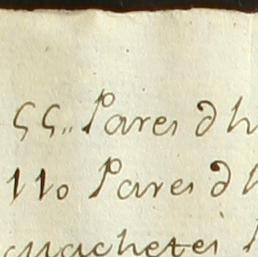 55.. Pares d h
110 Pares d h
machetes